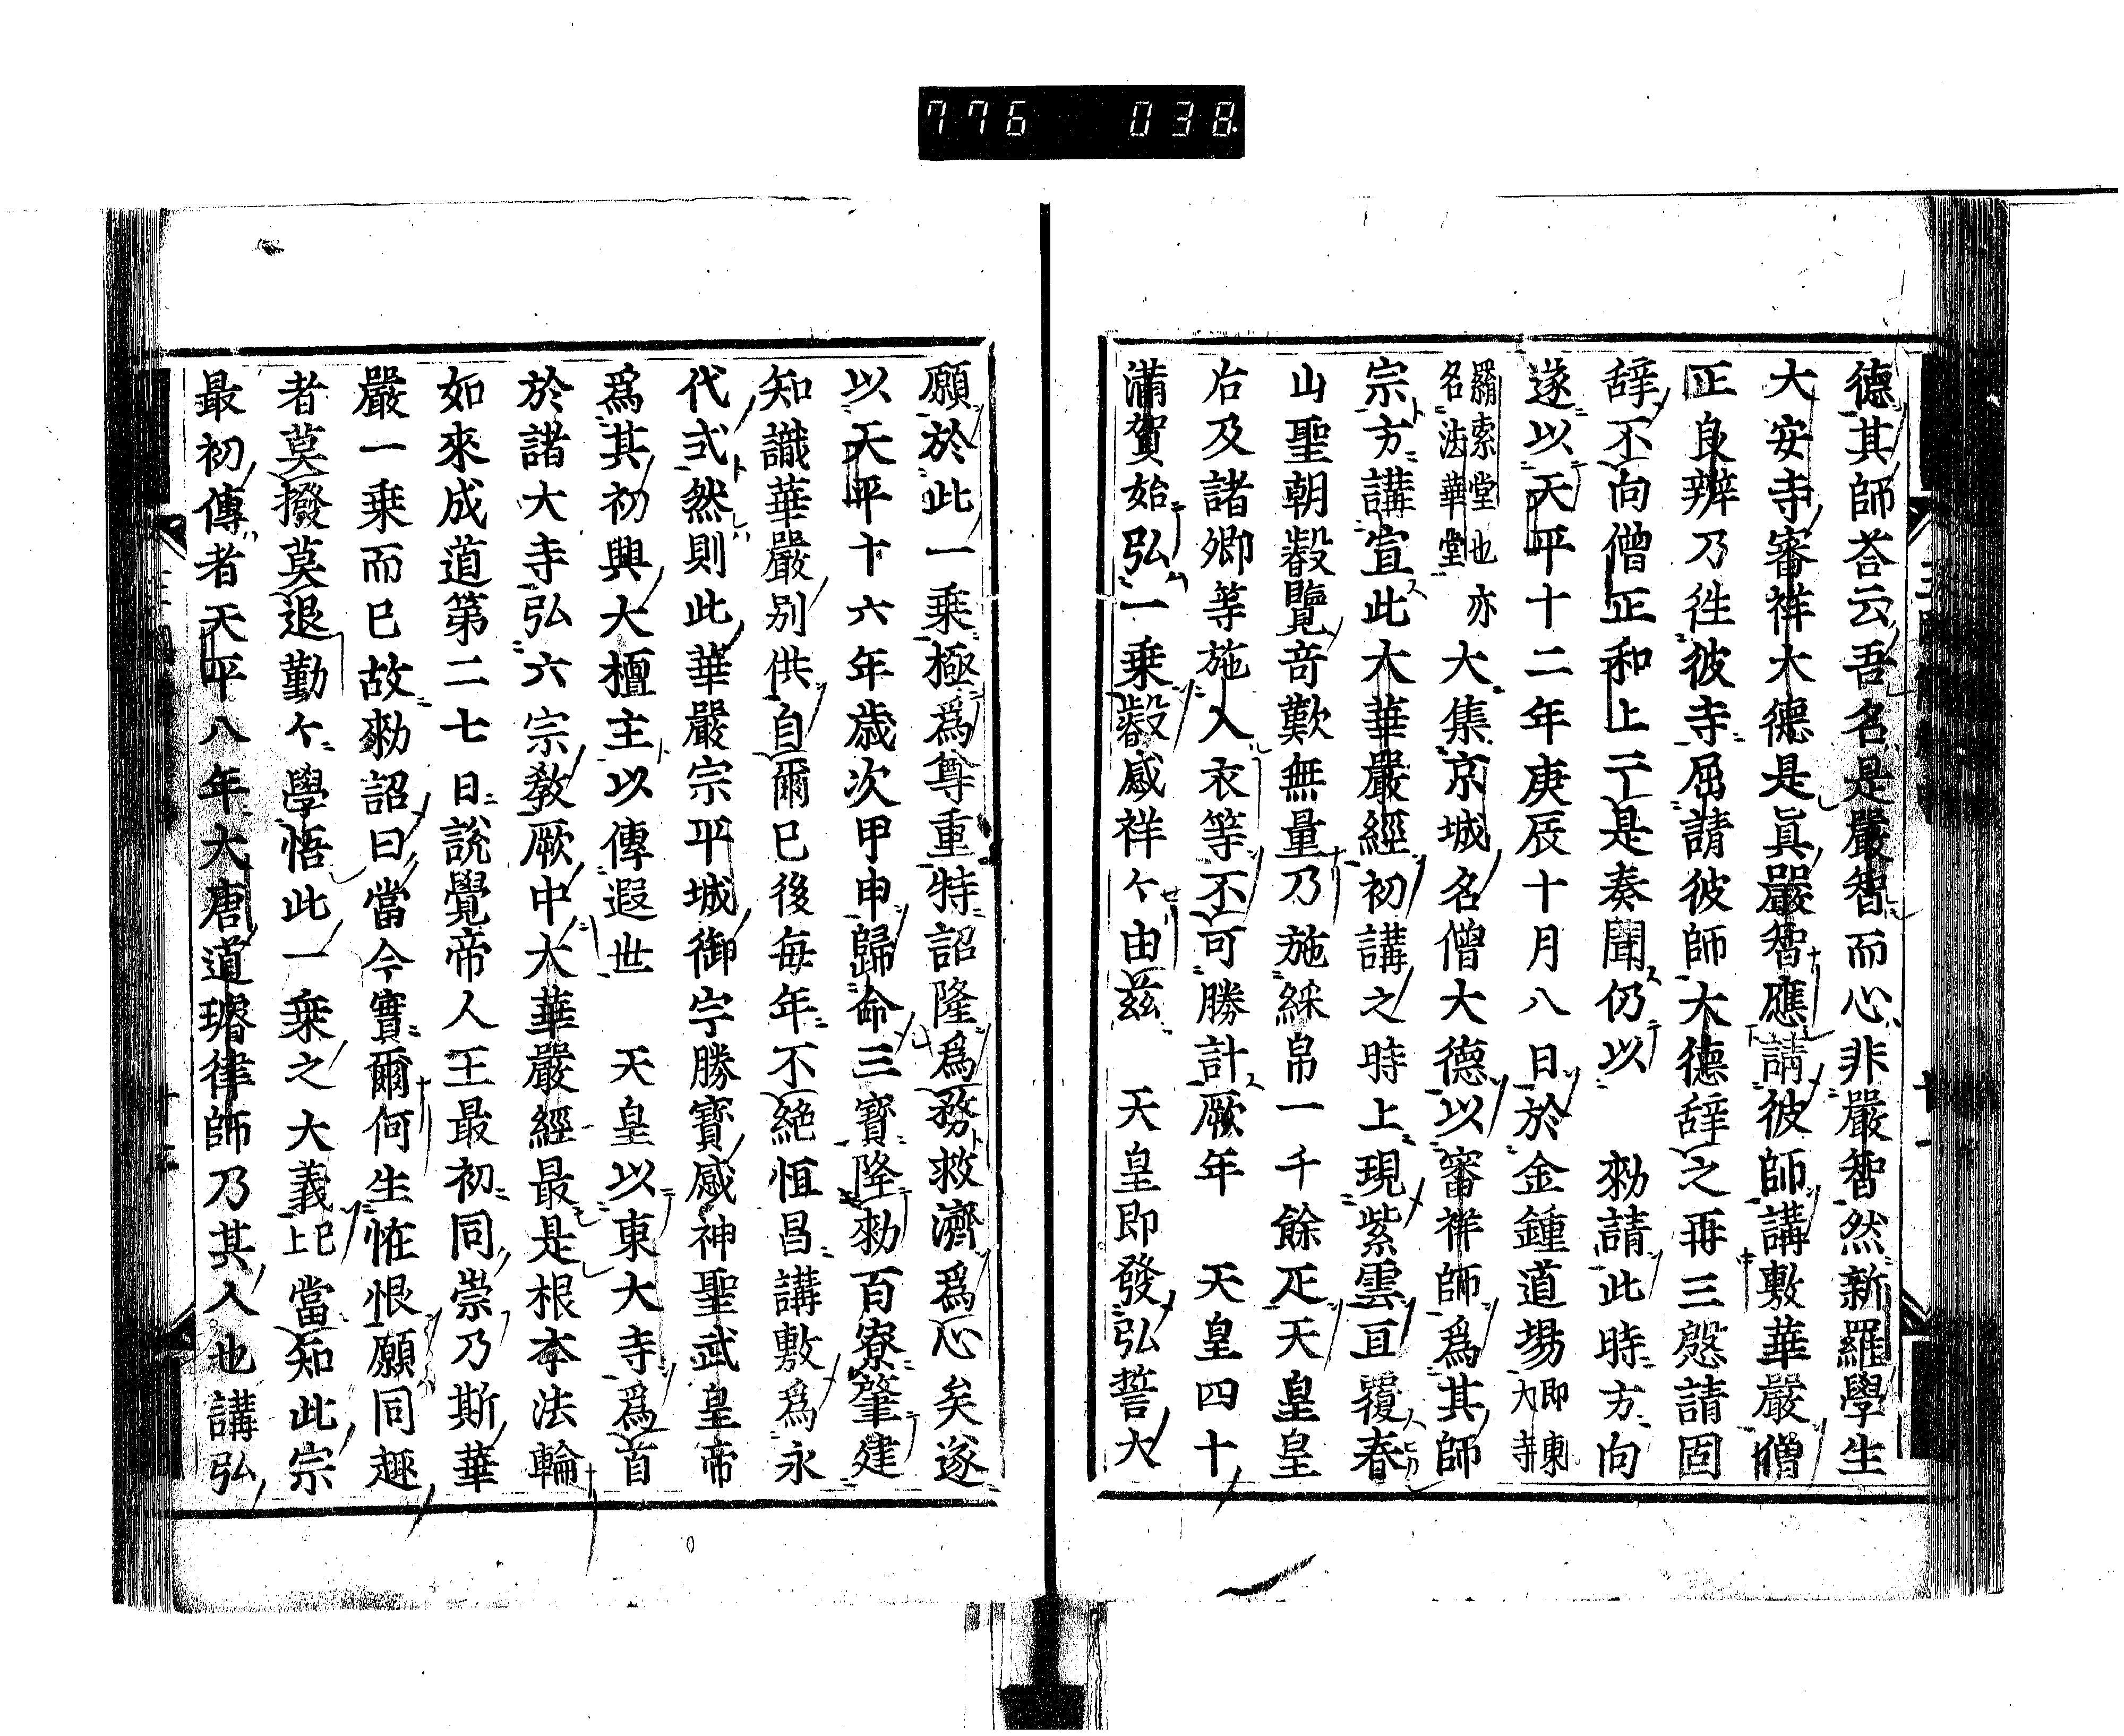 776 038
德其師荅云吾名是嚴智而心非嚴智然新羅學生
大安寺審祥大德是眞嚴智應請彼師講敷華嚴僧
正良辨乃徃彼寺屈請彼師大德辞之再三慇請固
辞不向僧正和上二丁是奏聞仍以　勑請此時方向
遂以天平十二年庚辰十月八日於金鍾道場即東大寺
羂索堂也亦名法華堂大集京城名僧大德以審祥師爲其師
宗方講宣此大華嚴經初講之時上現紫雲亘覆春
山聖朝叡覽竒歎無量乃施綵帛一千餘疋天皇皇
后及諸卿等施入衣等不可勝計厥年　天皇四十
滿賀始弘一乗叡感祥々由茲　天皇即發弘誓大
願於此一乗極爲尊重特詔隆爲務救濟爲心矣遂
以天平十六年歳次甲申歸命三寶降勑百寮肇建
知識華嚴別供自爾巳後毎年不絶恒昌講敷爲永
代式然則此華嚴宗平城御宇勝寶感神聖武皇帝
爲其初興大檀主以傳遐世　天皇以東大寺爲首
於諸大寺弘六宗教厥中大華嚴經最是根本法輪
如來成道第二七日說覺帝人王最初同崇乃斯華
嚴一乗而巳故勑詔曰當今實爾何生恠恨願同趣
者莫撥莫退勤々學悟此一乗之大義已上當知此宗
最初傳者天平八年大唐道璿律師乃其人也講弘